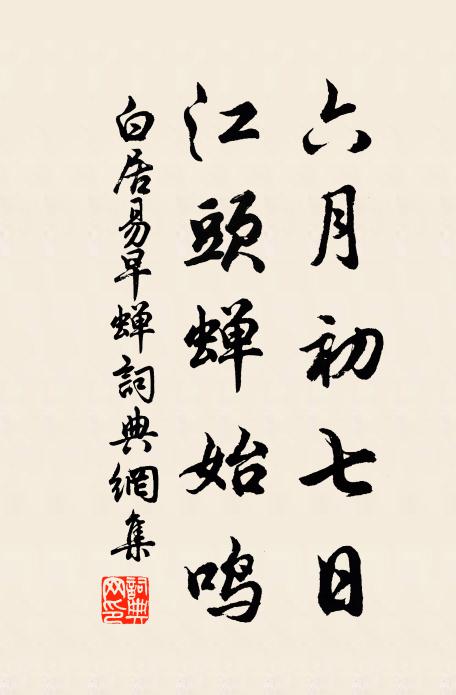 六月初七日
江頭蝉始鸣
白居易早蝉詞典網集
詞典
网印